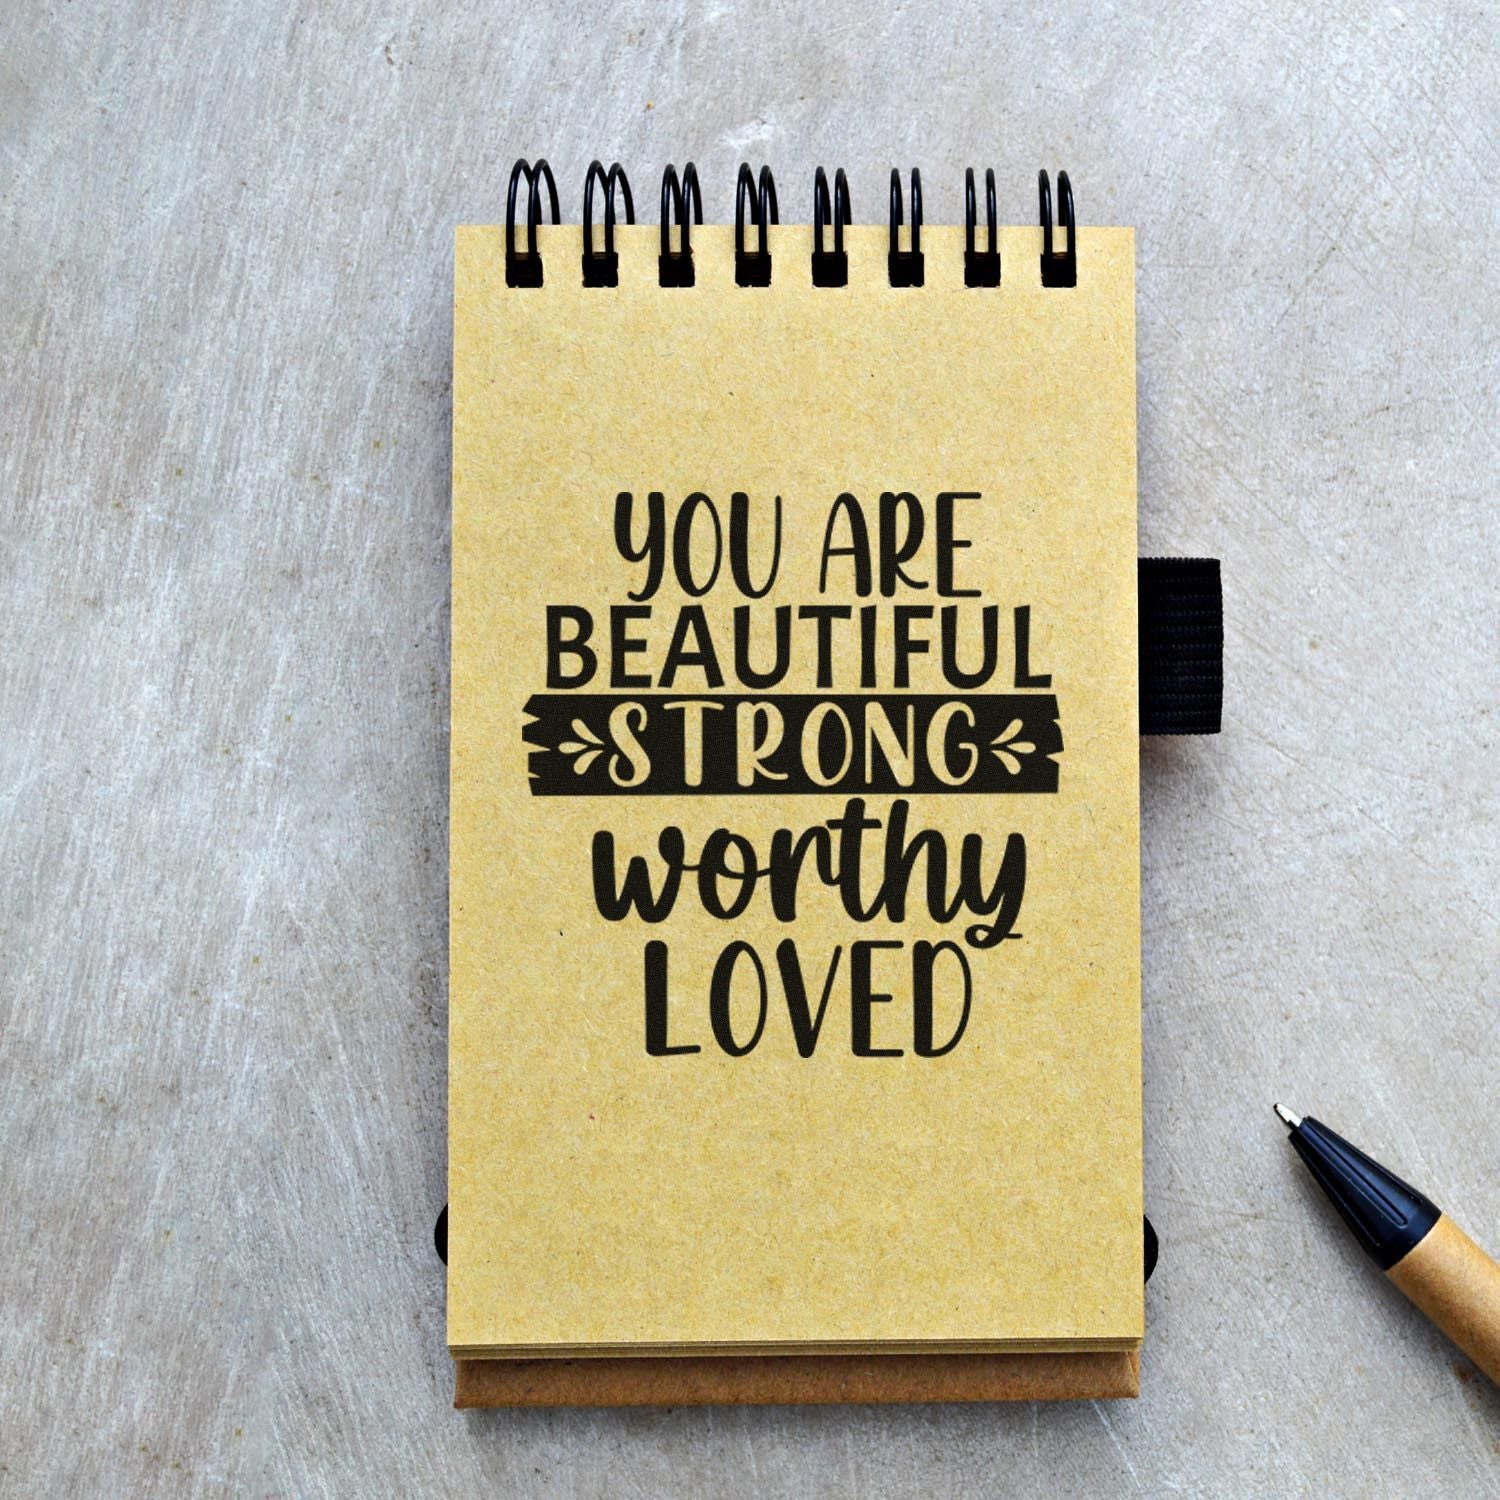 YOU ARE
BEAUTIFUL
STRONG
worthy
LOVED